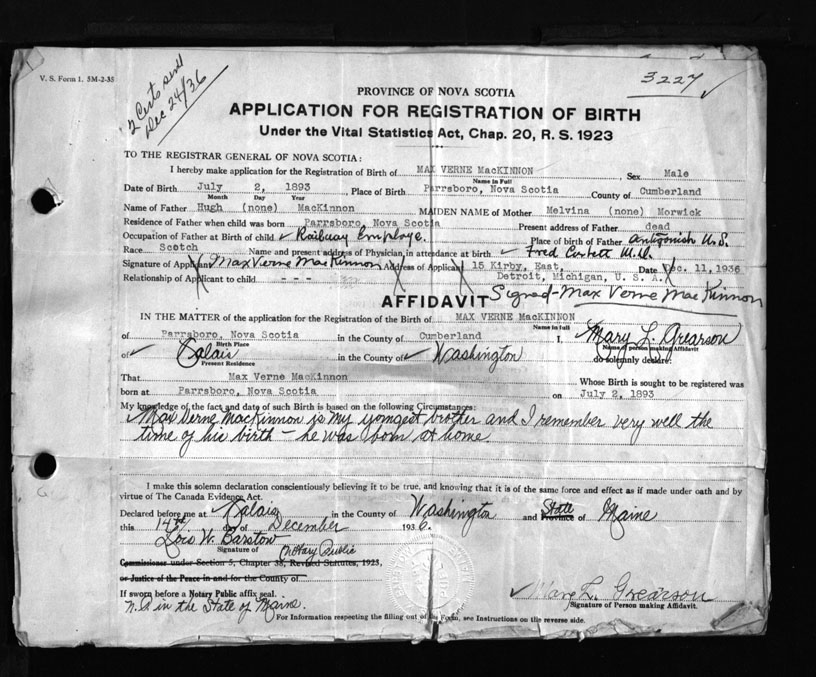 V. S. Form 1. 5M-2-35
2 Certs sent
Dec 24/36
3227
PROVINCE OF NOVA SCOTIA
APPLICATION FOR REGISTRATION OF BIRTH
Under the Vital Statistics Act, Chap. 20, R. S. 1923
TO THE REGISTRAR GENERAL OF NOVA SCOTIA:
I hereby make application for the Registration of Birth of MAX VERNE MacKINNON Sex Male
Name in Full
Date of Birth July 2, 1893, Place of Birth Parrsboro, Nova Scotia County of Cumberland
Month Day Year
Name of Father Hugh (none) MacKinnon MAIDEN NAME of Mother Melvina (none) Morwick
Residence of Father when child was born Parrsboro, Nova Scotia Present address of Father dead
Occupation of Father at Birth of child Railway Employe. Place of birth of Father Antigonish N.S.
Race Scotch Name and present address of Physician in attendance at birth Fred Corbett M.D.
Signature of Applicant Max Verne MacKinnon Address of Applicant 15 Kirby, East, Date Dec. 11, 1936
Relationship of Applicant to child - - - Detroit, Michigan, U. S. A.
AFFIDAVIT Signed - Max Verne MacKinnon
IN THE MATTER of the application for the Registration of the Birth of MAX VERNE MacKINNON
Name in full
of Parrsboro, Nova Scotia in the County of Cumberland I, Mary L. Grearson
Birth Place Name of person making Affidavit
of Calais in the County of Washington do solemnly declare:
Present Residence
That Max Verne MacKinnon Whose Birth is sought to be registered was
born at Parrsboro, Nova Scotia on July 2, 1893
My knowledge of the fact and date of such Birth is based on the following Circumstances:
Max Verne MacKinnon is my yomgest brother and I remember very well the
time of his birth - he was born at home
I make this solemn declaration conscientiously believing it to be true, and knowing that it is of the same force and effect as if made under oath and by
virtue of The Canada Evidence Act.
Declared before me at Calais in the County of Washington and State Province of Maine
this 14th day of December 1936.
Lois W. Barstow
Signature of Notary Public
Commissioner under Section 5, Chapter 38, Revised Statutes, 1923,
or Justice of the Peace in and for the County of
If sworn before a Notary Public affix seal.
N.P. in the State of Maine.
Mary L. Grearson
Signature of Person making Affidavit.
For Information respecting the filling out of the Form, see Instructions on the reverse side.